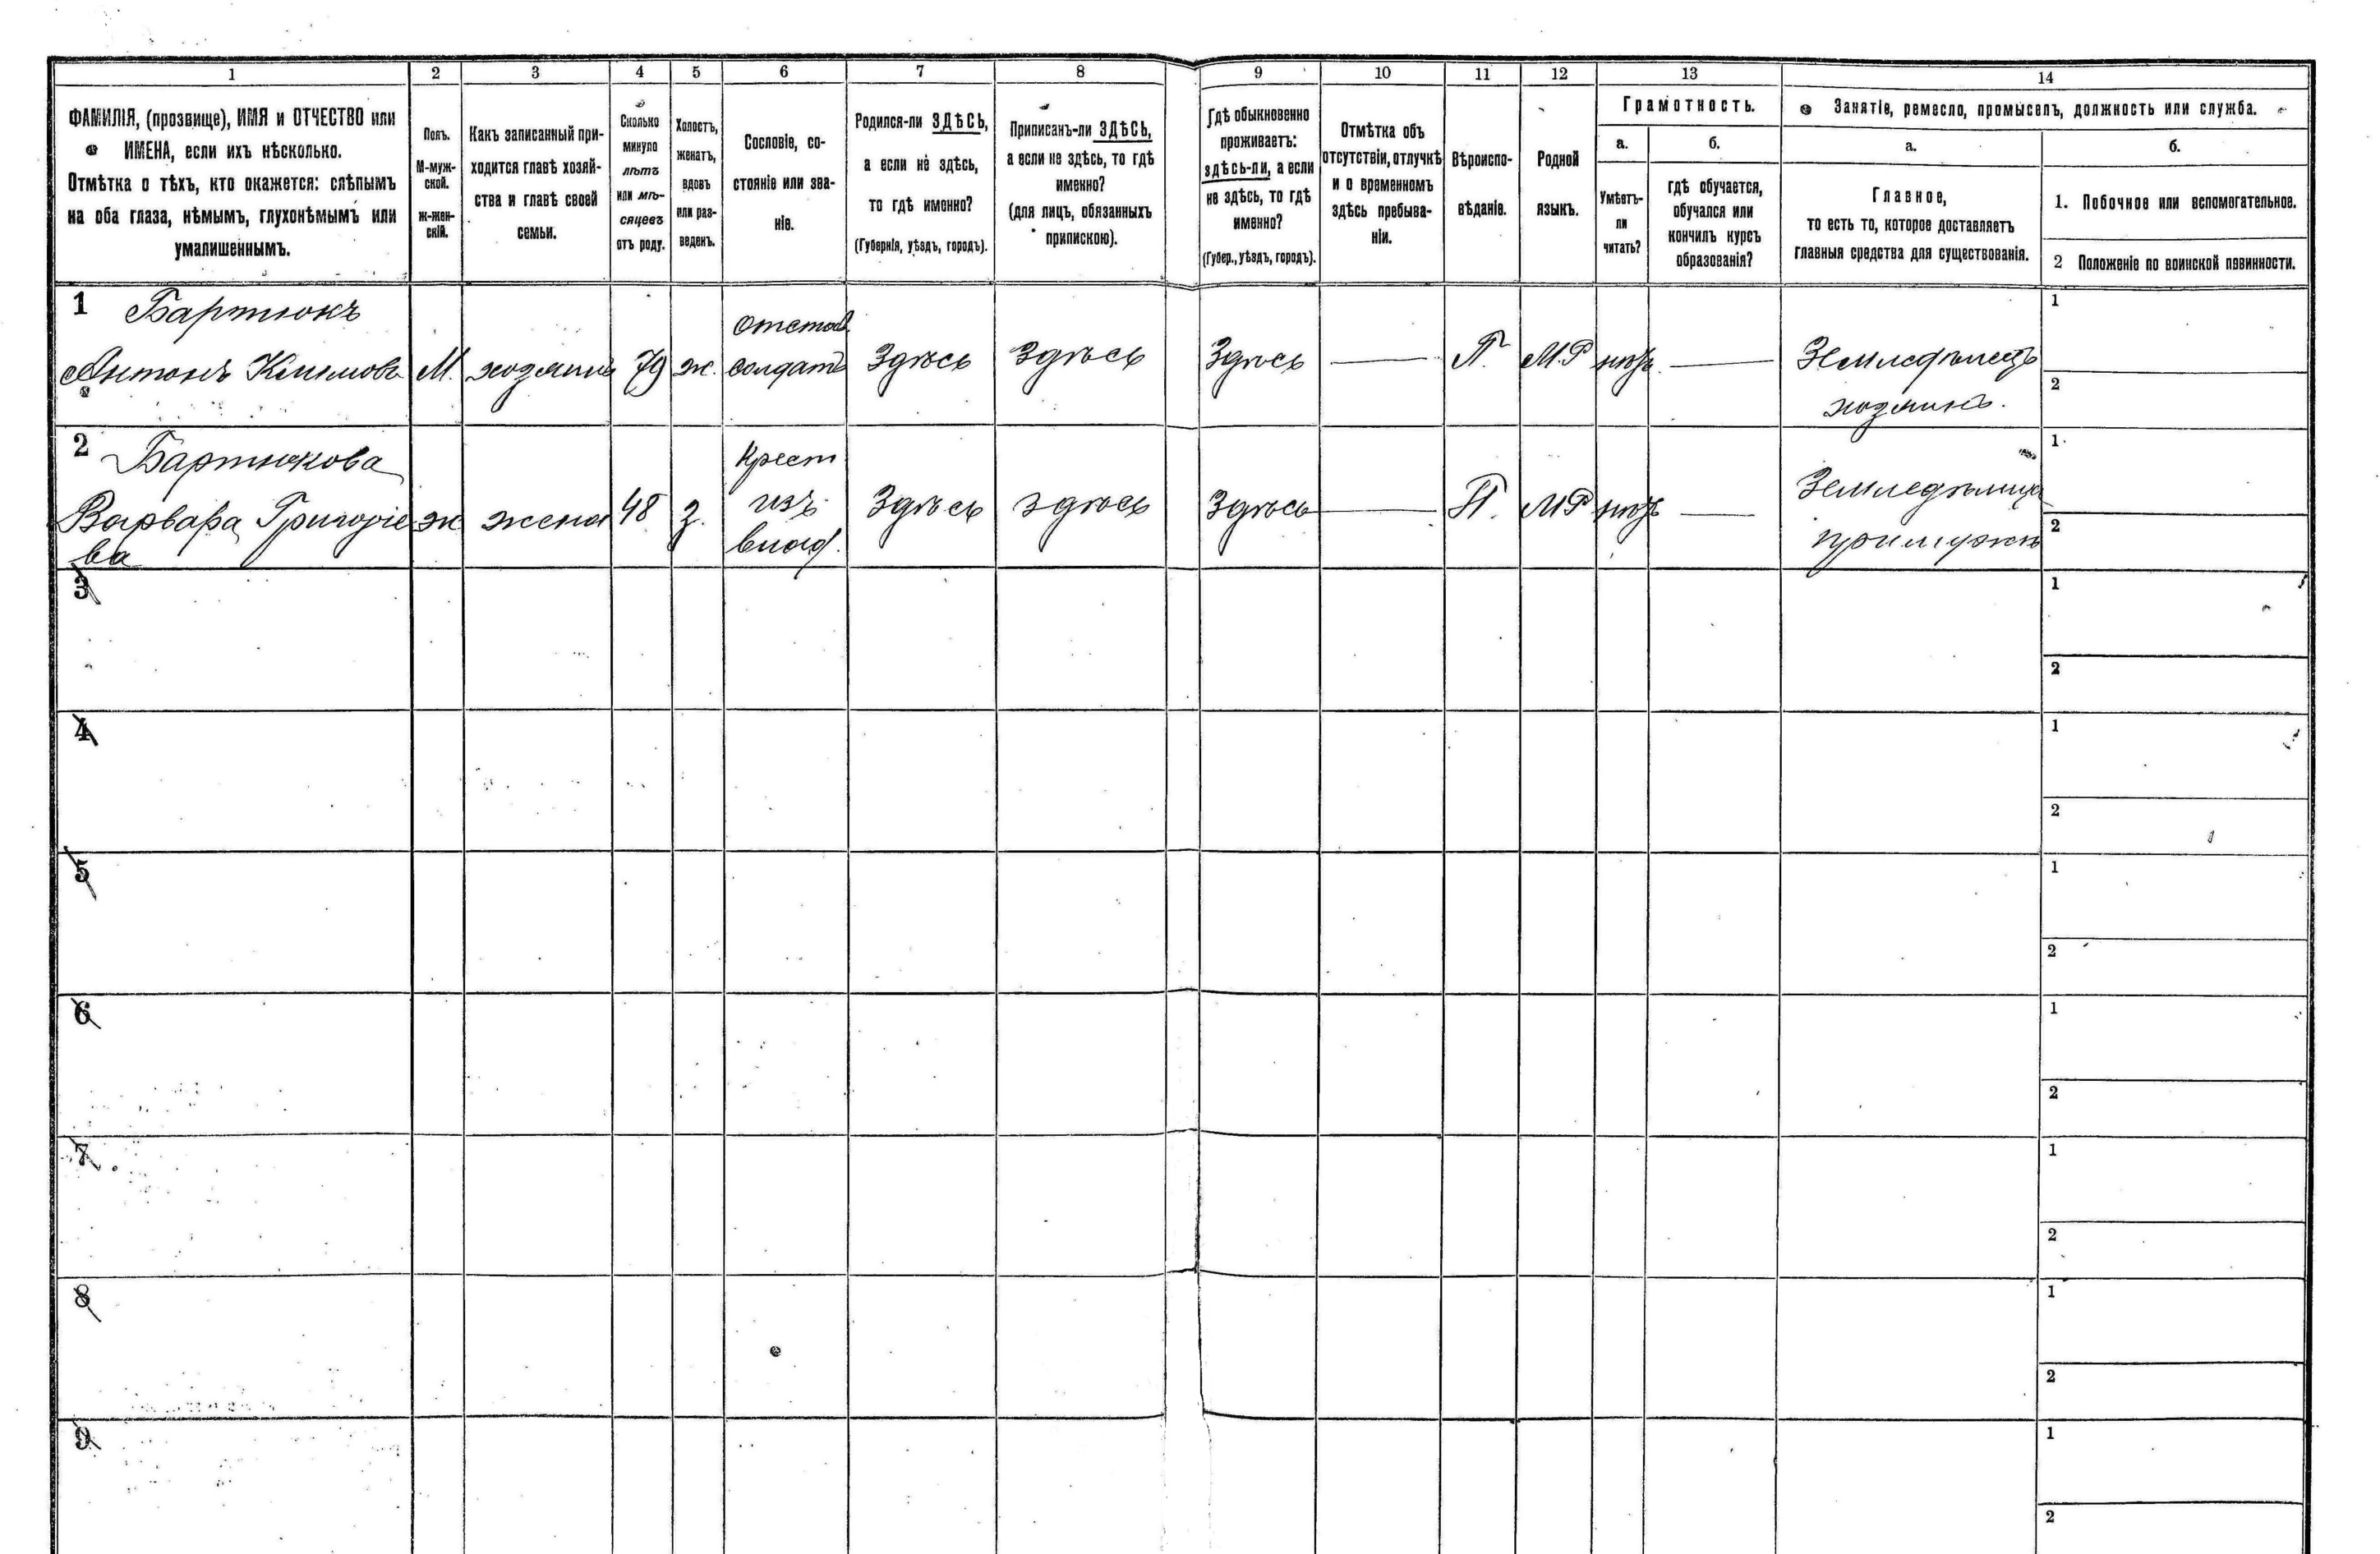 1 2 3 4 5 6 7 8 9 10 11 12 13 14
ФАМИЛІЯ, (прозвище), ИМЯ и ОТЧЕСТВО или
ИМЕНА, если ихъ нѣсколько.
Отмѣтка о тѣхъ, кто окажется: слѣпымъ
на оба глаза, нѣмымъ, глухонѣмымъ или
умалишеннымъ.
Полъ.
М-муж-
ской.
ж-жен-
скій.
Какъ записанный при-
ходится главѣ хозяй-
ства и главѣ своей
семьи.
Сколько
минуло
лѣтъ
или мѣ-
сяцевъ
отъ роду.
Холостъ,
женатъ,
вдовъ
или раз-
веденъ.
Сословіе, со-
стояніе или зва-
ніе.
Родился-ли ЗДѢСЬ,
а если не здѣсь,
то гдѣ именно?
(Губернія, уѣздъ, городъ).
Приписанъ-ли ЗДѢСЬ,
а если не здѣсь, то гдѣ
именно?
(для лицъ, обязанныхъ
припискою).
Гдѣ обыкновенно
проживаетъ:
здѣсь-ли, а если
не здѣсь, то гдѣ
именно?
(Губер., уѣздъ, городъ).
Отмѣтка объ
отсутствіи, отлучкѣ
и о временномъ
здѣсь пребыва-
ніи.
Вѣроиспо-
вѣданіе.
Родной
языкъ.
Грамотность.
а.
Умѣетъ-
ли
читать?
б.
гдѣ обучается,
обучался или
кончилъ курсъ
образованія?
Занятіе, ремесло, промыселъ, должность или служба.
а.
Главное,
то есть то, которое доставляетъ
главныя средства для существованія.
б.
1. Побочное или вспомогательное.
2 Положеніе по воинской повинности.
1 Бартюкъ
Антонъ Климовъ М. хозяинъ 79 ж. отстав. солдатъ Здѣсь Здѣсь Здѣсь — П. М.Р нѣтъ — Земледѣлецъ
хозяинъ.
1
2
2 Бартюкова
Варвара Григоріе
ва
ж жена 48 з. Крест
изъ
влад.
Здѣсь здѣсь Здѣсь — П. МР нѣтъ — Земледѣлица
при мужѣ
1
2
3
1
2
4
1
2
5
1
2
6
1
2
7
1
2
8
1
2
9
1
2